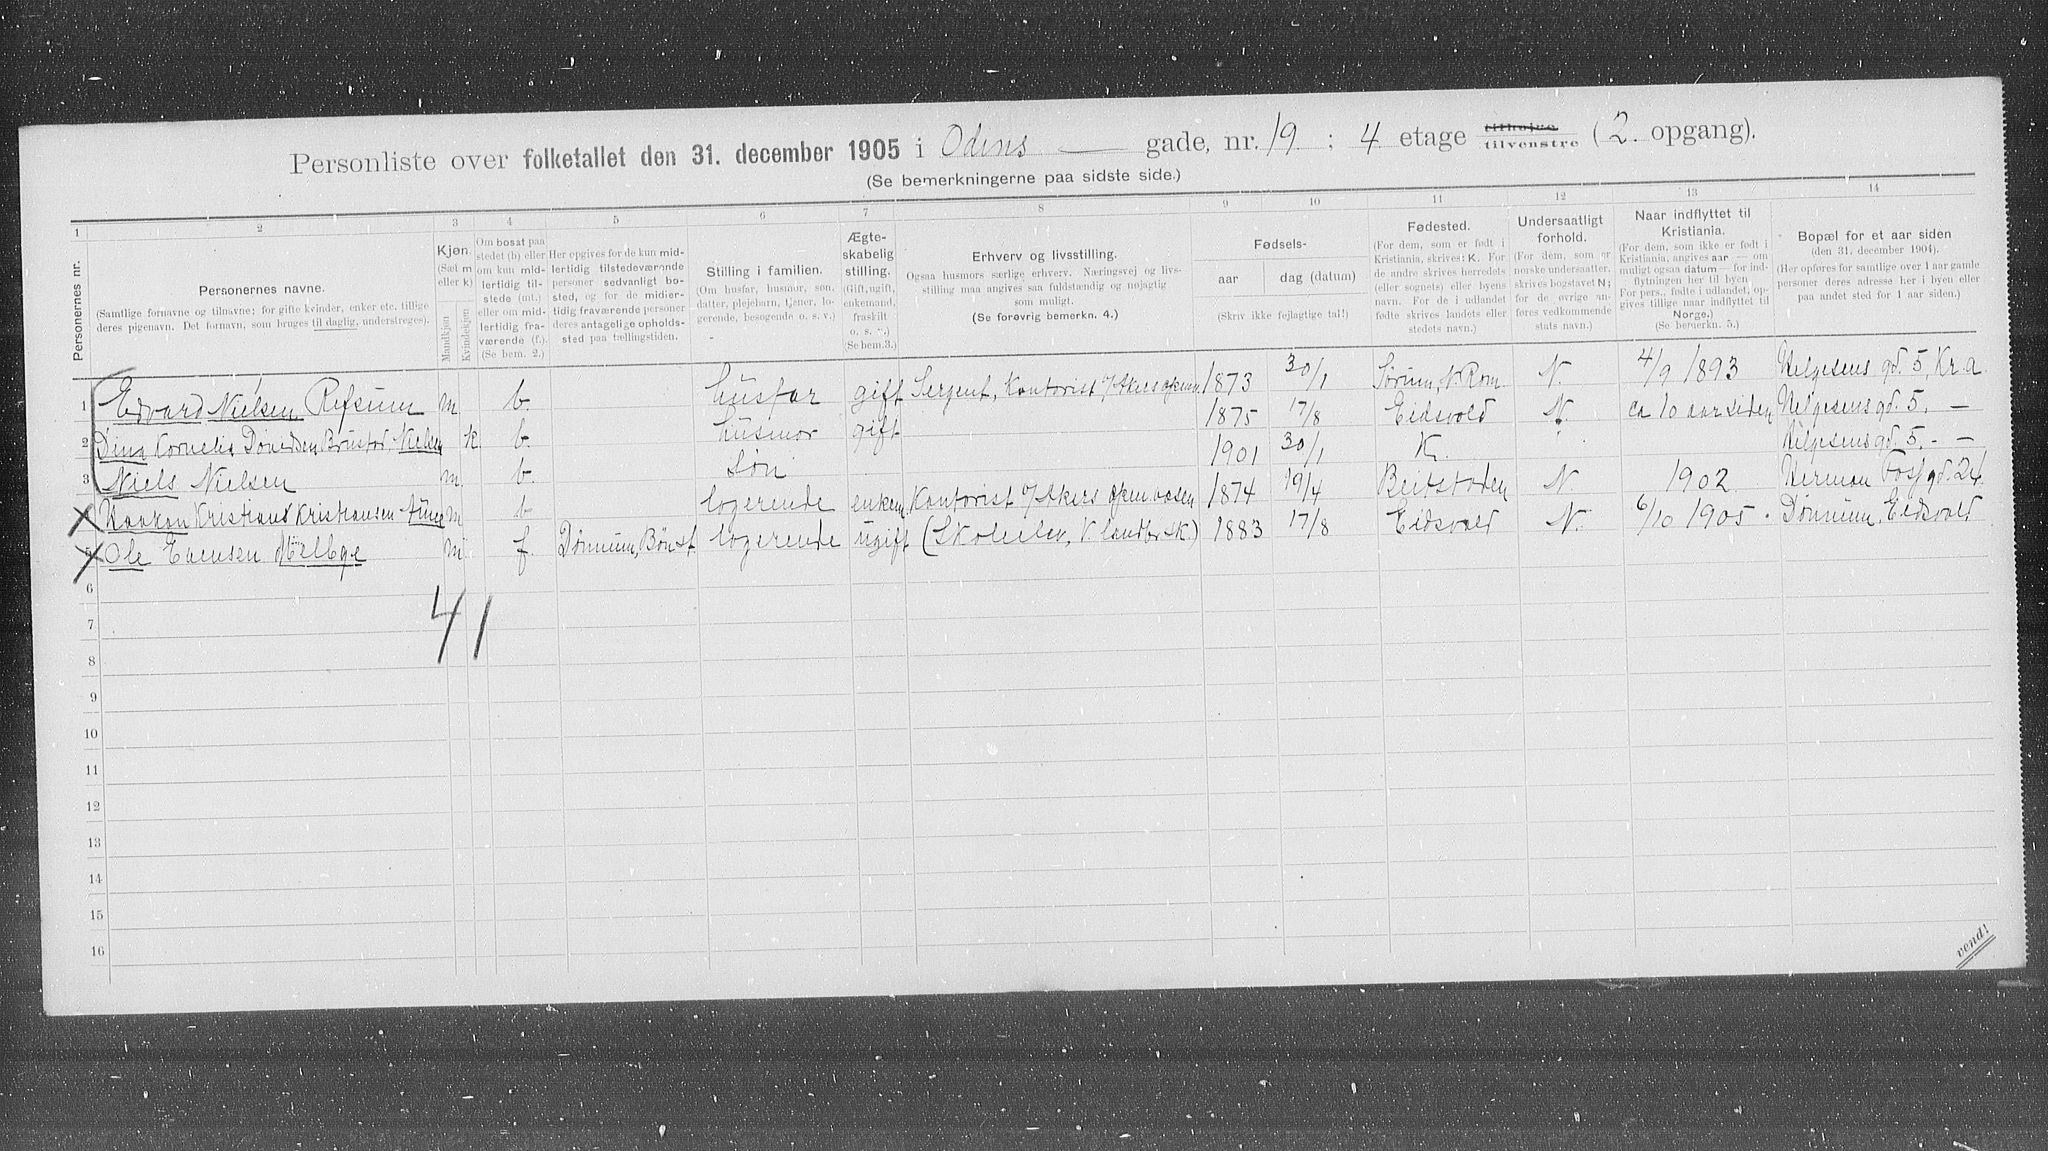 Personliste over folketallet den 31. december 1905 i Odins — gade, nr. 19 ; 4 etage tilhøjre tilvenstre ( 2. opgang).
(Se bemerkningerne paa sidste side.)
1 2 3 4 5 6 7 8 9 10 11 12 13 14
Personernes nr.
Personernes navne.
(Samtlige fornavne og tilnavne; for gifte kvinder, enker etc. tillige
deres pigenavn. Det fornavn, som bruges til daglig, understreges).
Kjøn.
(Sæt m
eller k)
Mandkjøn
Kvindekjøn
Om bosat paa
stedet (b) eller
om kun mid-
lertidig til-
stede (mt.)
eller om mid-
lertidig fra-
værende (f.).
(Se bem. 2.)
Her opgives for de kun mid-
lertidig tilstedeværende
personer sedvanligt bo-
sted, og for de midler-
tidig fraværende personer
deres antagelige opholds-
sted paa tællingstiden.
Stilling i familien.
(Om husfar, husmor, søn,
datter, plejebarn, tjener, lo-
gerende, besøgende o. s. v.)
Ægte-
skabelig
stilling.
(Gift, ugift,
enkemand,
fraskilt
o. s. v.)
(Se bem. 3.)
Erhverv og livsstilling.
Ogsaa husmors særlige erhverv. Næringsvej og livs-
stilling maa angives saa fuldstændig og nøjagtig
som muligt.
(Se forøvrig bemerkn. 4.)
Fødsels-
aar
dag (datum)
(Skriv ikke fejlagtige tal!)
Fødested.
(For dem, som er født i
Kristiania, skrives: K. For
de andre skrives herredets
(eller sognets) eller byens
navn. For de i udlandet
fødte skrives landets eller
stedets navn.)
Undersaatligt
forhold.
(For dem, som er
norske undersaatter,
skrives bogstavet N;
for de øvrige an-
føres vedkommende
stats navn.)
Naar indflyttet til
Kristiania.
(For dem, som ikke er født i
Kristiania, angives aar — om
muligt ogsaa datum — for ind-
flytningen her til byen
For pers., fødte i udlandet, op-
gives tillige naar indflyttet til
Norge.)
(Se bemerkn. 5.)
Bopæl for et aar siden
(den 31. december 1904).
(Her opføres for samtlige over 1 aar gamle
personer deres adresse her i byen eller
paa andet sted for 1 aar siden.)
1 Edvard Nielsen Refsum m b. husfar gift Sergent, Kontorist 1873 30/1 Sørum, N. Rom. N. 4/9 1893 Helgesens gd. 5, Kr.a
2 Dina Kornelia Nielsen k b. husmor gift 1875 17/8 Eidsvold N. ca 10 aar siden Helgesens gd. 5. —
3 Niels Nielsen m b. Søn 1901 30/1 K. Helgesens gd. 5. - —
Haakon Kristian Kristiansen m b logerende enkem. Kontorist v/ Akers 1874 19/4 Beitstaden N 1902 Herman Fossgd. 24.
5 Ole Evensen m f. Dønnum, Bøn st. logerende ugift (Skoleelev, V. landbr. sk.) 1883 17/8 Eidsvold N. 6/10 1905. Dønnum, Eidsvold
6
41
7
8
9
10
11
12
13
14
15
16
vend!